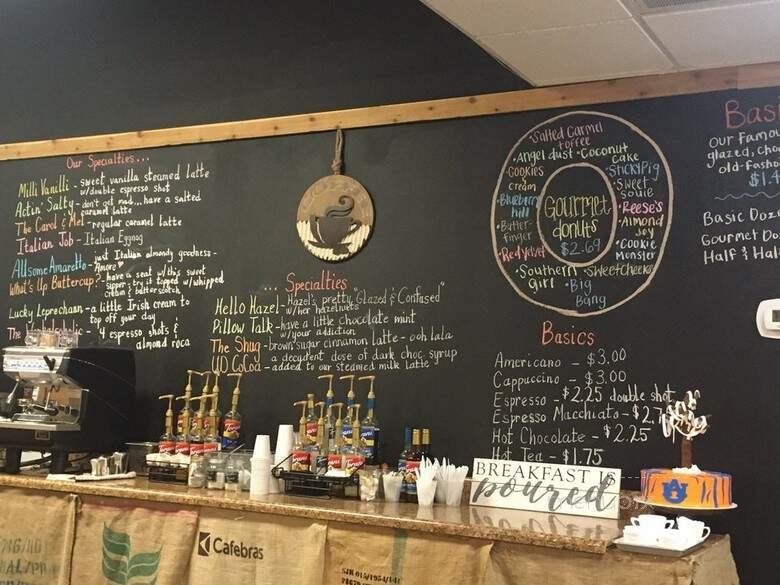 Our Specialties...
Milli Vanilli - sweet vanilla steamed latte
w/double espresso shot
Actin' Salty - don't get mad... have a salted
caramel latte
The Carol & Mel - regular caramel latte
Italian Job - Italian Eggnog
Allsome Amaretto - just Italian almondy goodness -
Amore
What's Up Buttercup? - have a seat w/this sweet
sipper - try it topped w/whipped
cream & butterscotch
Lucky Leprechaun - a little Irish cream to
top off your day
The
4 espresso shots &
almond roca
Specialties
...
Hello Hazel - Hazel's pretty "Glazed & Confused"
w/her hazelnuts
Pillow Talk - have a little chocolate mint
w/your addiction
The Shug - brown sugar cinnamon latte - ooh lala
UO CoCoa - a decydent dose of dark choc syrup
added to our steamed milk latte
Salted Carmel
toffee
Angel dust
Coconut
cake
Cookies
&
cream
StickyPig
Sweet
Souie
Blueberry
hill
Reese's
Butter-
finger
Almond
Joy
Red Velvet
Cookie
Monster
Southern
girl
Sweetcheeks
Big
Bang
Gourmet
donuts
$2.69
Basics
Americano - $3.00
Cappuccino - $3.00
Espresso - $2.25 double shot
Espresso Macchiato - $2.7
Hot Chocolate - $2.25
Hot Tea - $1.75
Bas
Our Famo
glazed, cho
old-fash
$1.4
Basic Doz
Gourmet Do
Half & Hal
BREAKFAST IS
poured
Torani
AU
Cafebras